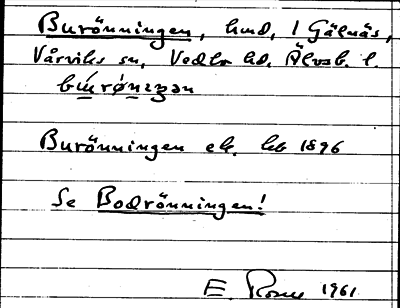 Burönningen, hmd, 1 Gälnäs,
Vårviks sn, Vedbo hd, Älvsb. l.
Burönningen ek. kb 1896
Se Bodrönningen!
E. 1961